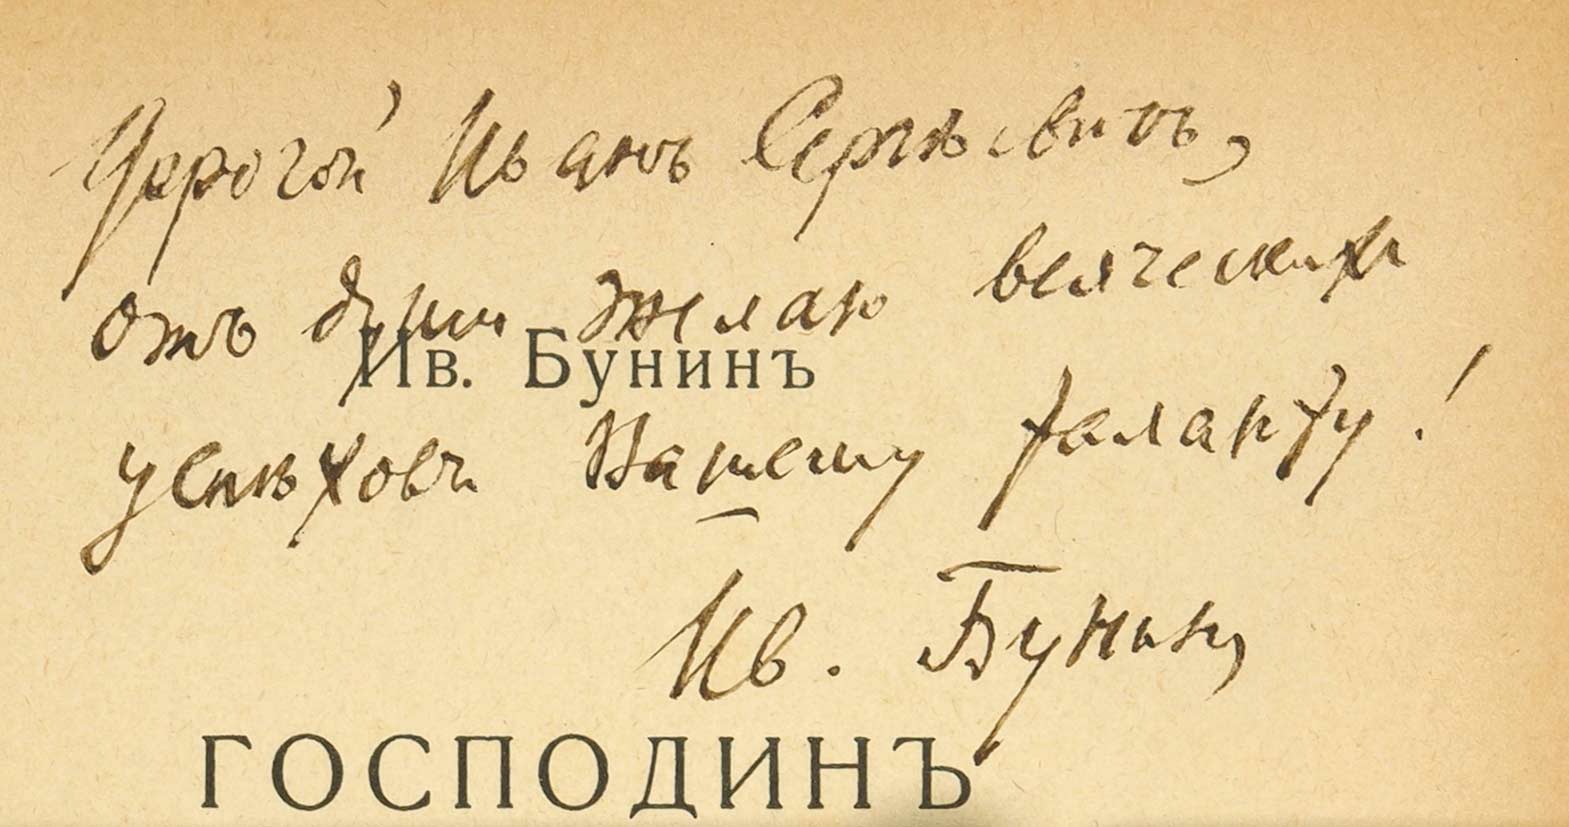 Дорогой Иванъ Сергѣевичъ,
отъ души желаю всяческихъ
Ив. Бунинъ
успѣховъ Вашему таланту!
Ив. Бунинъ
ГОСПОДИНЪ